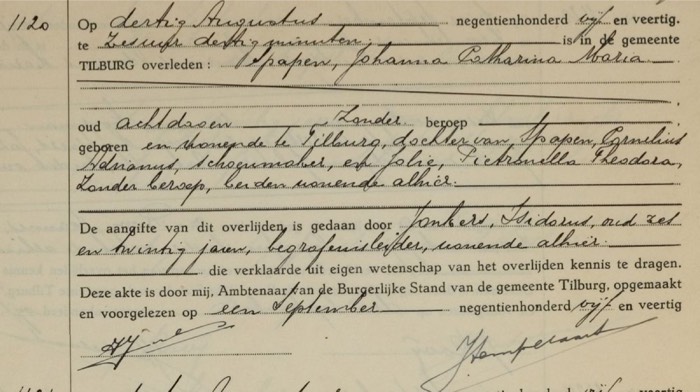 1120
Op dertig Augustus negentienhonderd vijf en veertig.
te zes uur dertig minuten. is in de gemeente
TILBURG overleden: Spapen, Johanna Catharina Maria
oud acht dagen, Zonder beroep
geboren en wonende te Tilburg, dochter van, Spapen, Cornelius
Adrianus, schoenmaker, en Jolie, Pietronella Theodora,
Zonder beroep, beiden wonende alhier.
De aangifte van dit overlijden, is gedaan door Jonkers, Isidorus, oud zes
en twintig jaren, begrafenisleider, wonende alhier.
die verklaarde uit eigen wetenschap van het overlijden kennis te dragen.
Deze akte is door mij, Ambtenaar van de Burgerlijke Stand van de gemeente Tilburg, opgemaakt
en voorgelezen op een September negentienhonderd vijf en veertig